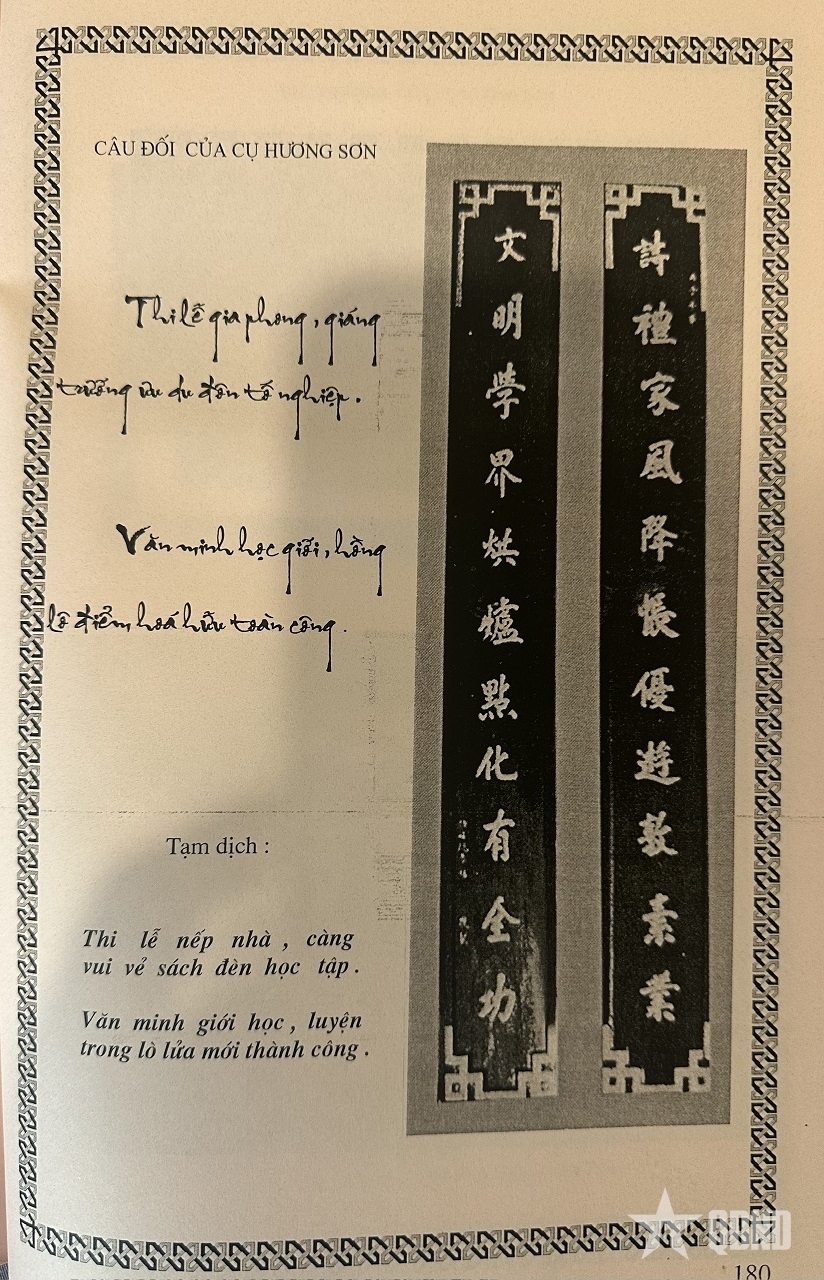 CÂU ĐỐI CỦA CỤ HƯƠNG SƠN
Thi lễ gia phong, giáng
trướng ưu du đôn tố nghiệp.
Văn minh học giới, hồng
lô điểm hoá hữu toàn công.
Tạm dịch :
Thi lễ nếp nhà , càng
vui vẻ sách đèn học tập .
Văn minh giới học , luyện
trong lò lửa mới thành công .
詩禮家風降帳優遊敦素業
文明學界烘爐點化有全功
QĐND
180